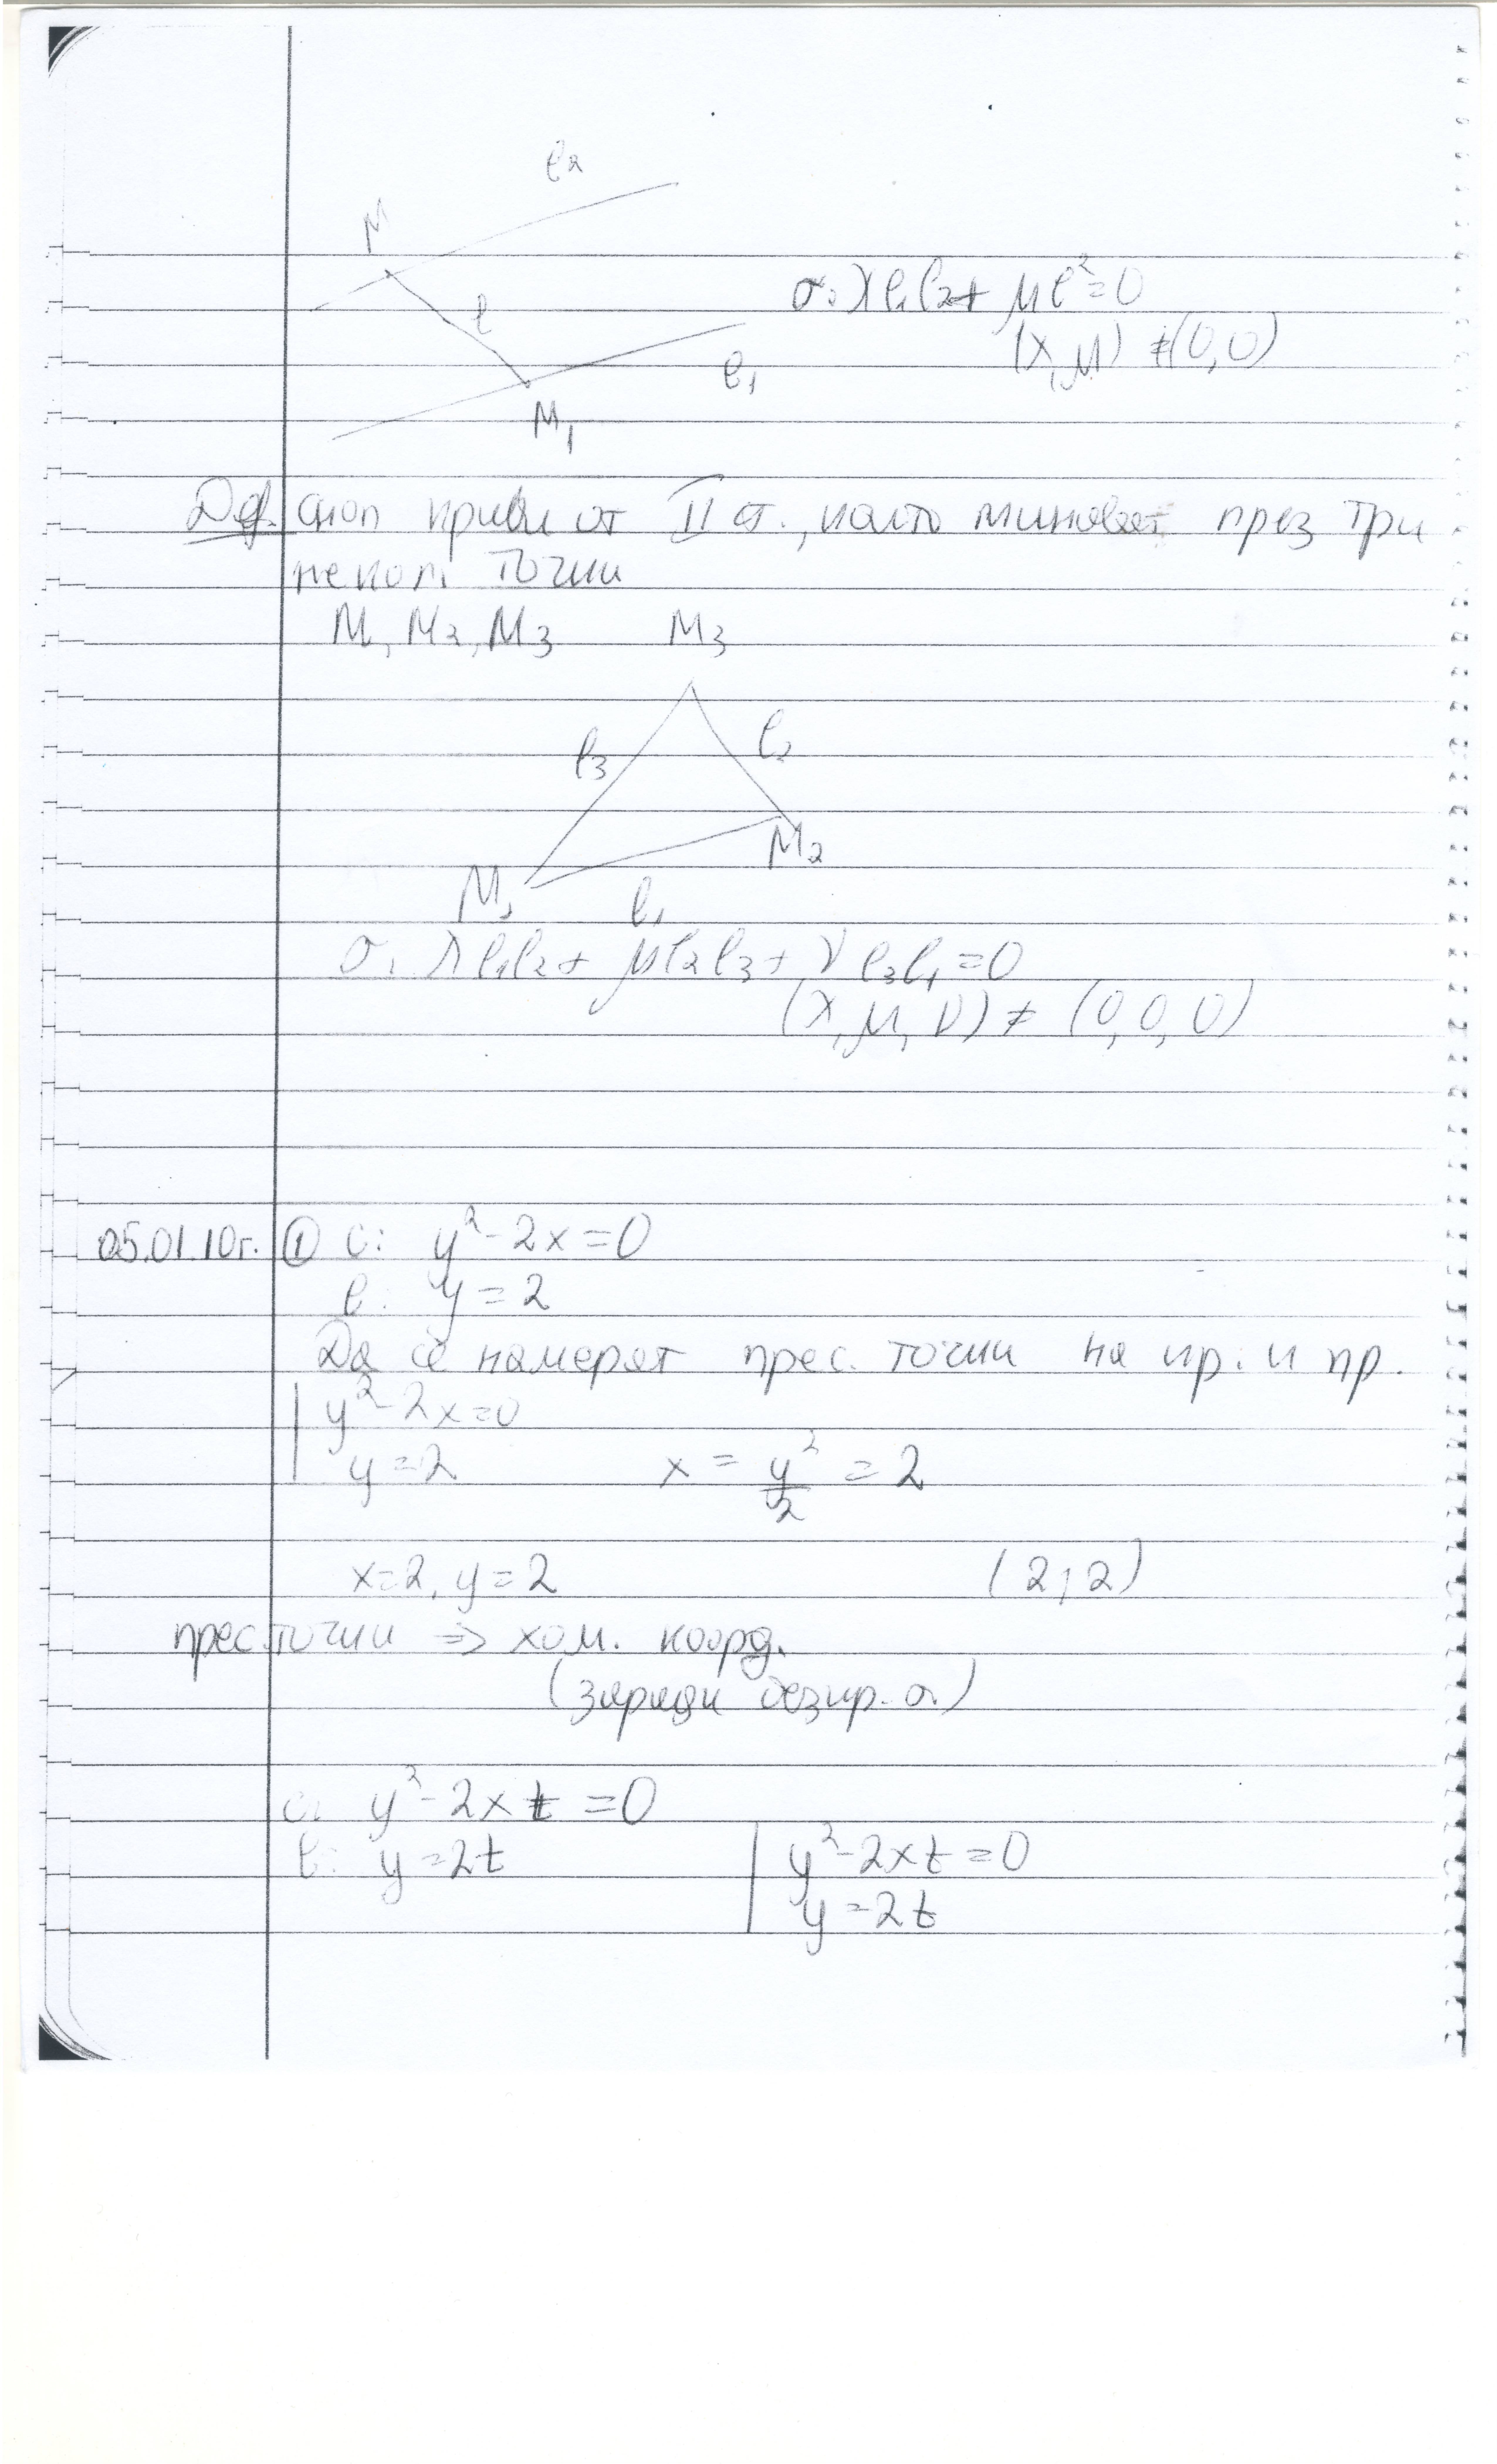 l₂
M
σ: λl₁l₂ + μl² = 0
l
(λ, μ) ≠ (0, 0)
l₁
M₁
Деф. Сноп криви от II ст., които минават през три
некол. точки
M₁, M₂, M₃
M₃
l₃ l₂
M₂
M₁
l₁
σ: λl₁l₂ + μl₂l₃ + νl₃l₁ = 0
(λ, μ, ν) ≠ (0, 0, 0)
05.01.10г. ① c: y² - 2x = 0
l: y = 2
Да се намерят прес. точки на кр. и пр.
y² - 2x = 0
y = 2 x = y²/2 = 2
x = 2, y = 2 (2, 2)
прес. точки ⇒ хом. коорд.
(заради безкр. т.)
c: y² - 2xt = 0
l: y = 2t
y² - 2xt = 0
y = 2t